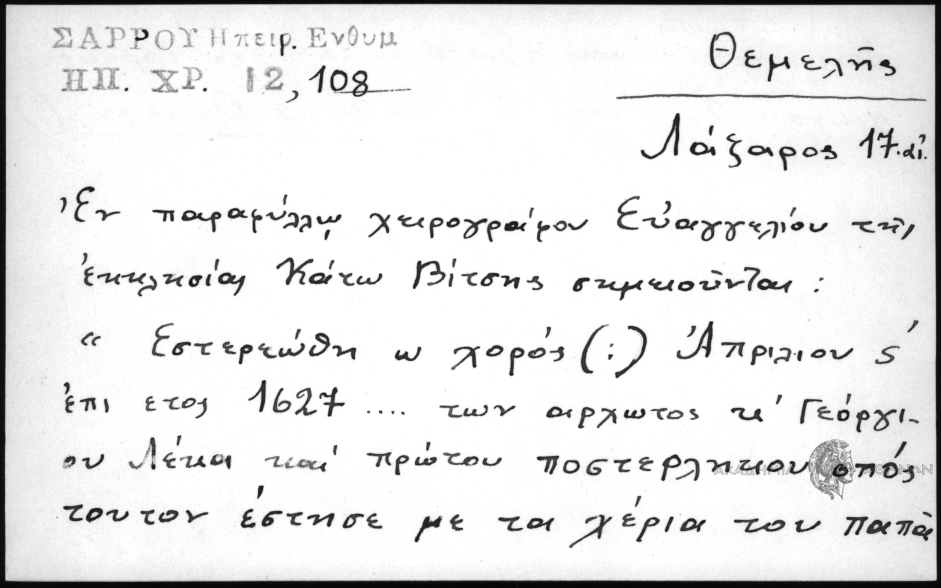 ΣΑΡΡΟΥ Ηπειρ. Ενθυμ
ΗΠ. ΧΡ. 12, 108
Θεμελής
Λάζαρος 17. αἰ.
Ἐν παραφύλλῳ χειρογράφου Εὐαγγελίου τῆς
ἐκκλησίας Κάτω Βίτσης σημειοῦνται :
“ Εστερεώθη ω χορός (;) Ἀπριλίου ς΄
ἐπι ετος 1627 .... των αρχωτος κ' Γεόργι-
ου Λέκα καί πρώτου ποστερληκου οπός
τουτον έστησε με τα χέρια του παπα
ΑΚΑΔΗΜΙΑ ΑΘΗΝΩΝ